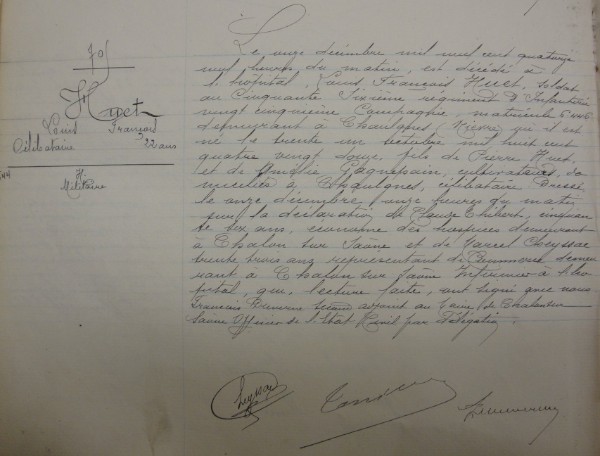 701
Huet
Louis François
Célibataire 22 ans
H.
Militaire
Le onze décembre mil neuf cent quatorze
neuf heures du matin, est décédé à
l'hôpital, Louis François Huet, soldat
au Cinquante Sixième régiment d'Infanterie
vingt cinquième Compagnie, matricule 6446
demeurant à Chaulgnes, Nièvre où il est
né le trente un octobre mil huit cent
quatre vingt douze, fils de Pierre Huet,
et de Gagnepain, cultivateurs, do
miciliés à Chaulgnes, célibataire. Dressé
le onze décembre, onze heures du matin
sur la déclaration de Claude Thibert, cinquan
te six ans, économe des hospices demeurant
à Chalon sur Saône et de Marcel Cheyssac
trente trois ans représentant de Commerce demeu
rant à Chalon sur Saône Infirmier à l'ho
pital, qui, lecture faite, ont signé avec nous
François adjoint au Maire de Chalon sur
Saône Officier de l'Etat Civil par délégation.
Cheyssac